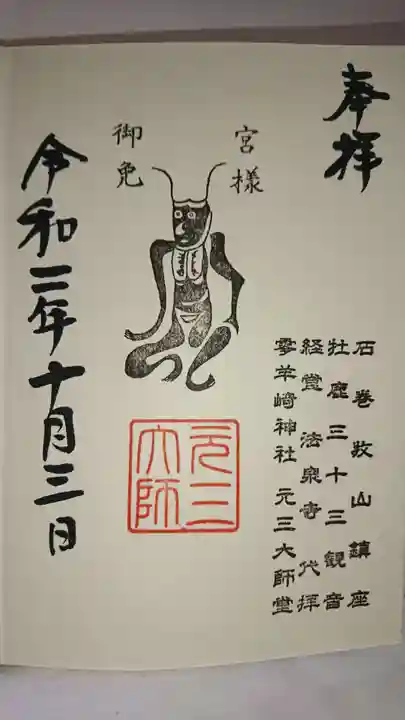 奉拝
宮様
御免
石巻牧山鎮座
牡鹿三十三観音
法泉寺代拝
零羊崎神社元三大師堂
元三
大師
令和二年十月三日